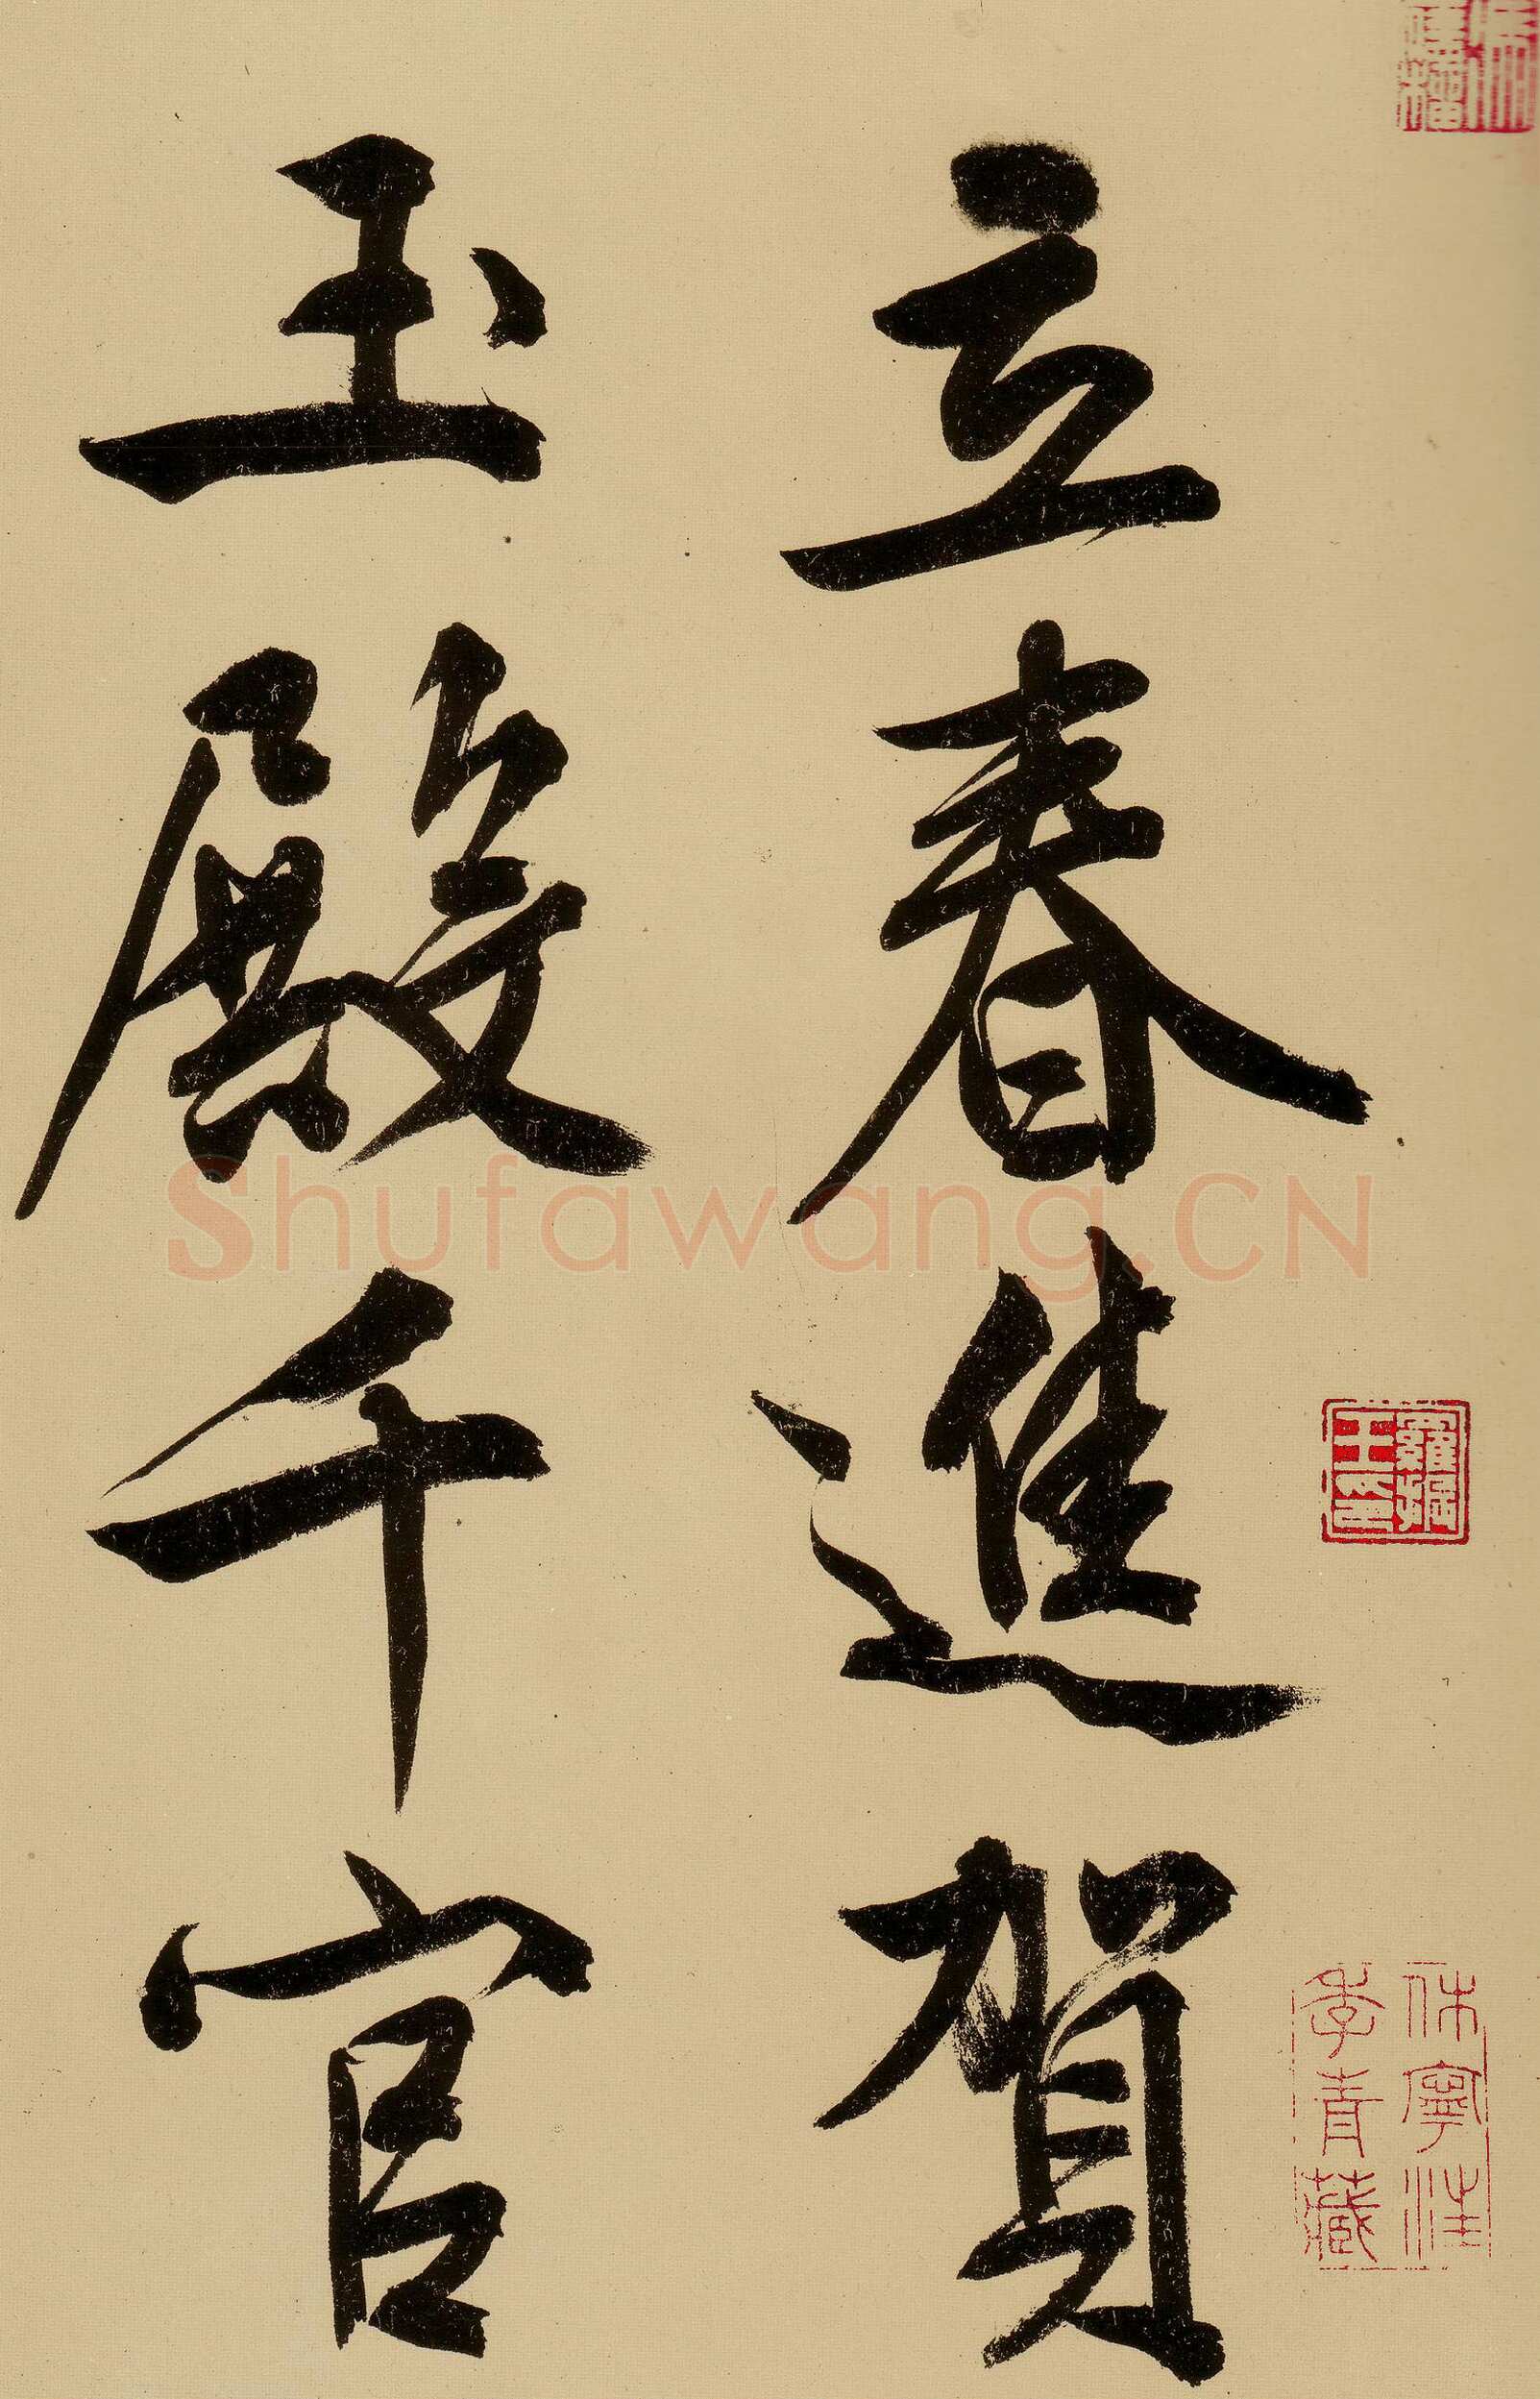 立春進賀
玉殿千官
Shufawang.CN
羅振
玉印
休寧汪
季青藏